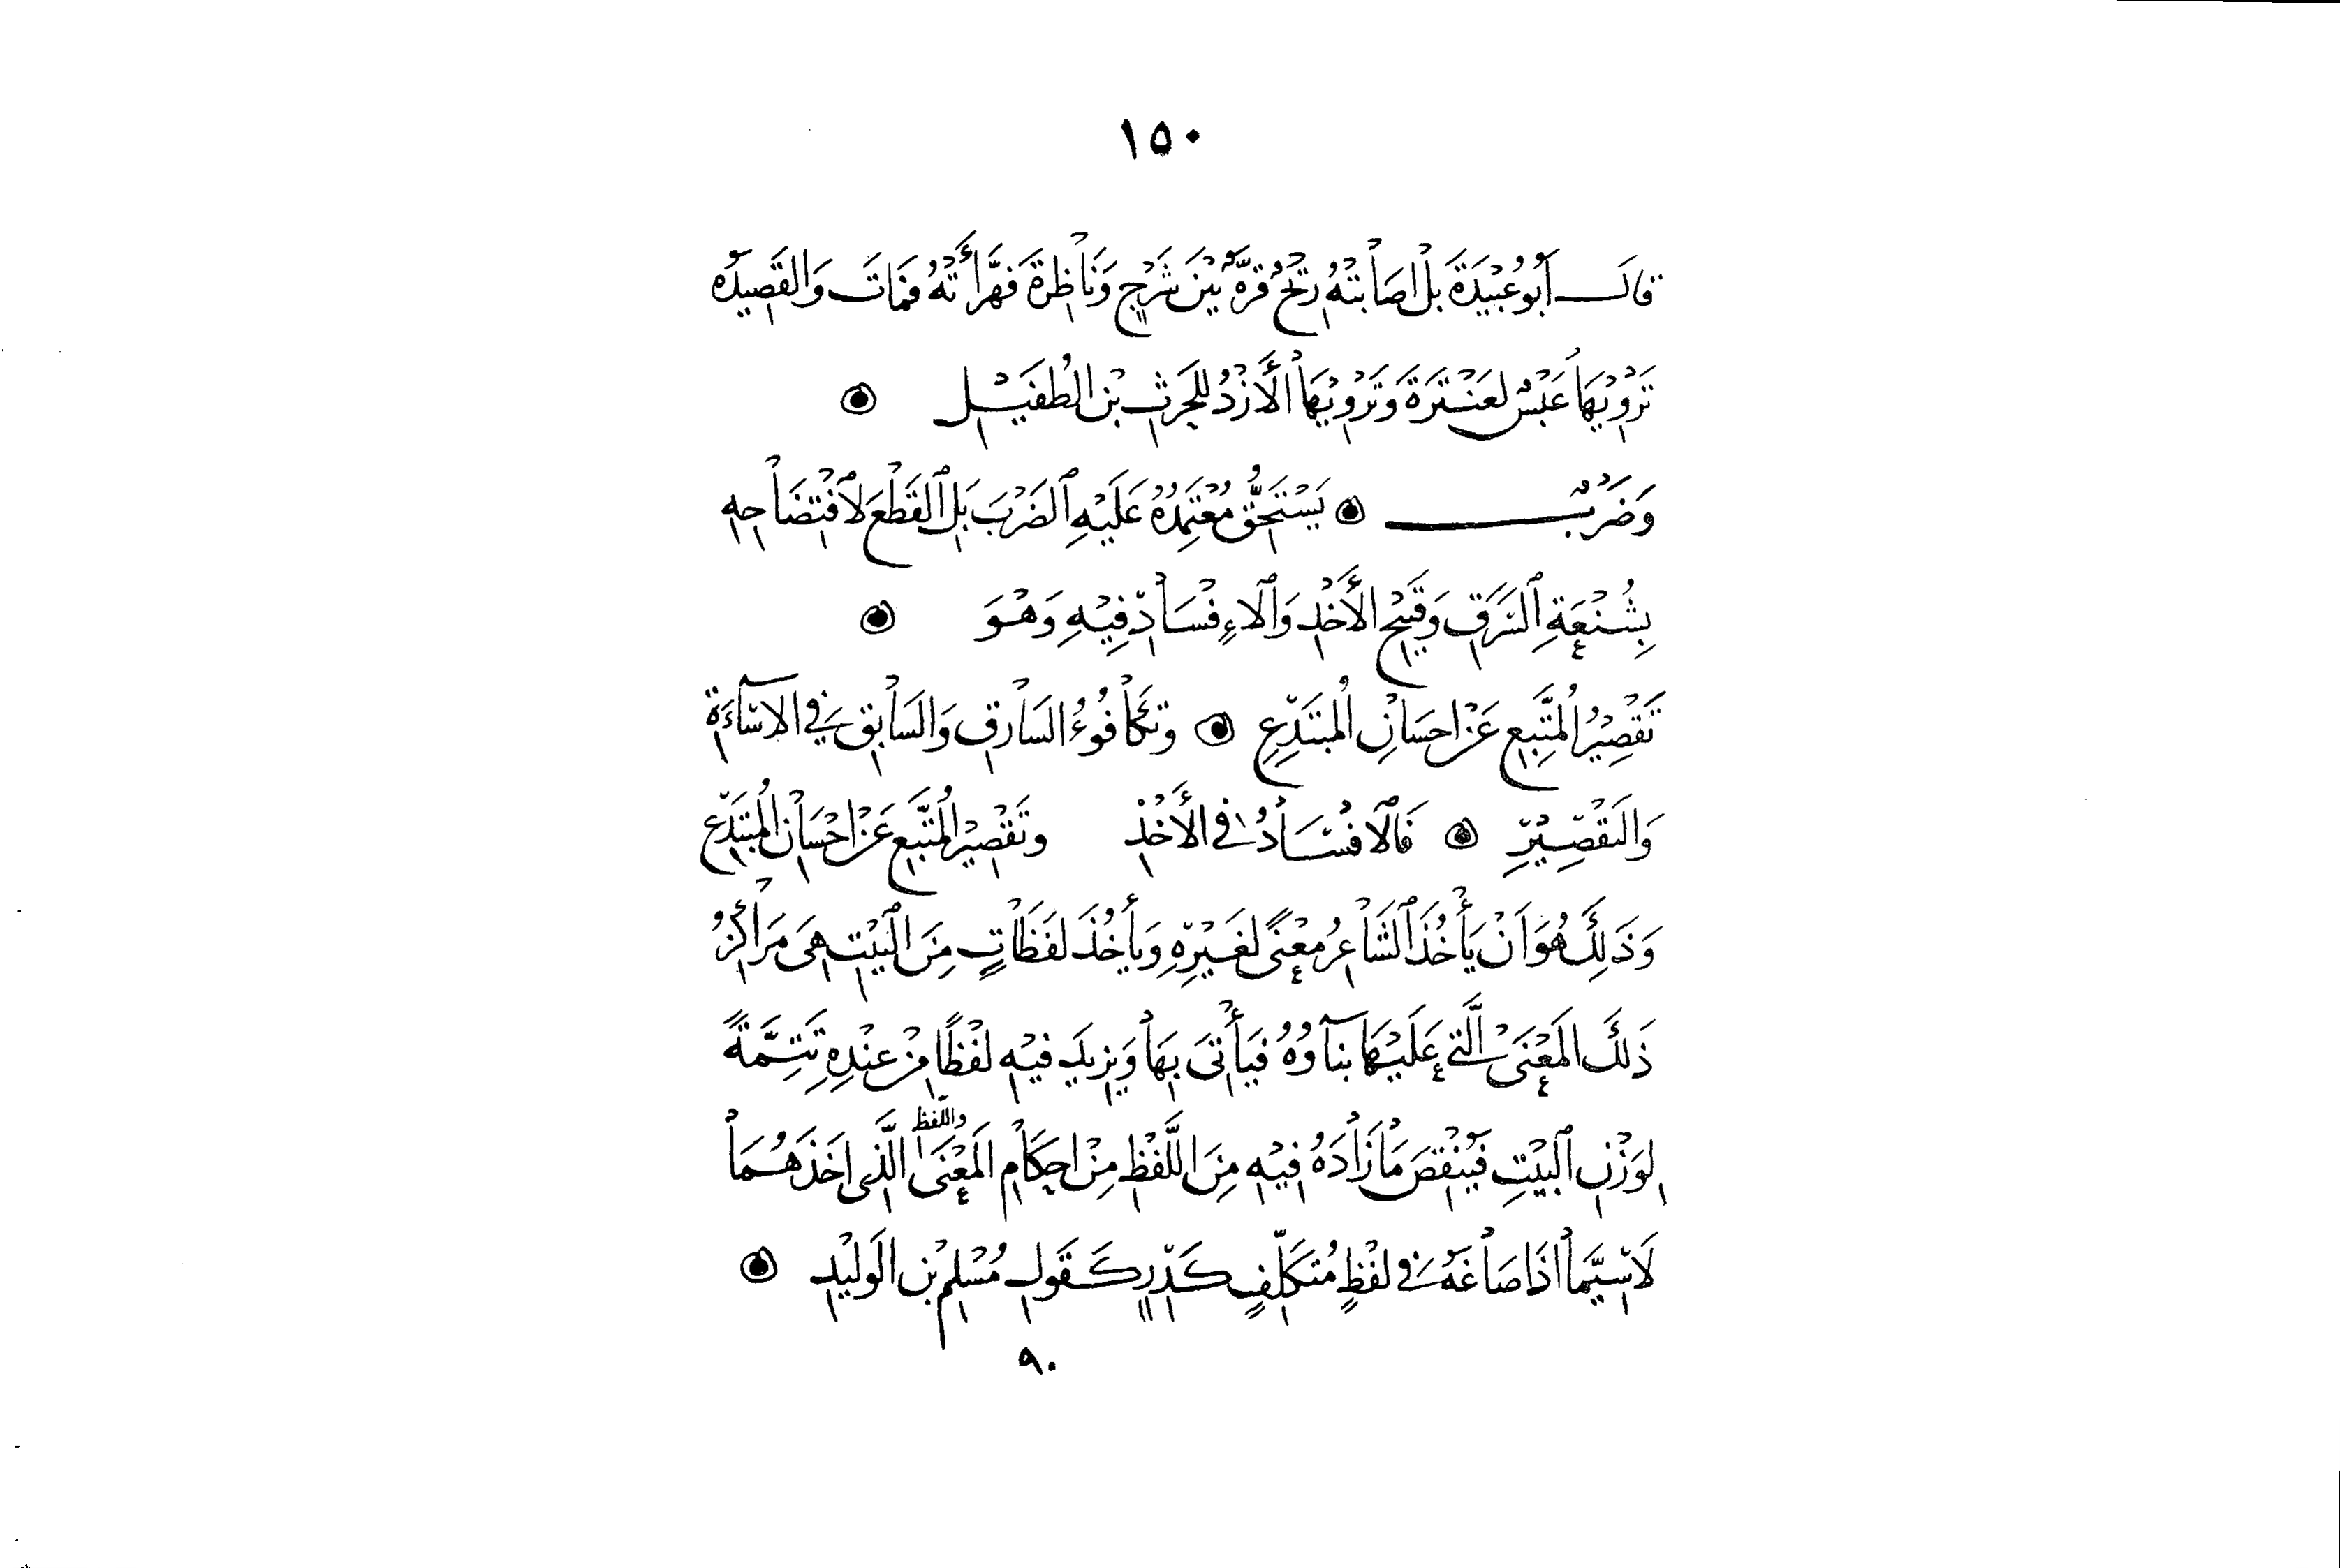 ١٥٠
قَالَ أَبُو عُبَيْدَةَ بَلْ أَصَابَتْهُ رِيْحُ قِرَّةٍ بَيْنَ شَرْجٍ وَنَاظِرَةَ فَهَرَّأَتْهُ فَمَاتَ وَالقَصِيدَةُ
تَرْوِيْهَا عَبْسٌ لِعَنْتَرَةَ وَتَرْوِيْهَا الأَزْدُ لِلحَرِثِ بْنِ الطُفَيْلِ ۞
وَضَرْبٌ ۞ يَسْتَحِقُّ مُعْتَمِدُهُ عَلَيْهِ الضَرْبَ بَلِ القَطْعَ لافْتِضَاحِهِ
بِشُنْعَةِ السَّرَقِ وَقَبِيْحِ الأَخْذِ وَالاءِفْسَادِ فِيْهِ وَهْوَ ۞
تَقْصِيْرُ المُتَّبِعِ عَنْ احسَانِ المُبْتَدِعِ ۞ وَتَكَافُوءُ السَارِقِ وَالسَابِقِ فِي الاسَآءَةِ
وَالتَقْصِيْرِ ۞ فَالافْسَادُ في الأَخْذِ وَتَقْصِيْرُ المُتَّبِعِ عَنْ احْسَانِ المُبْتَدِعِ
وَذَلِكَ هُوَ أَنْ يَأْخُذَ الشَاعِرُ مَعْنًى لِغَيْرِهِ وَيَأْخُذَ لَفَظَاتٍ مِنَ البَيْتِ هِيَ مَرَاكِزُ
ذَلِكَ المَعْنَى الَّتي عَلَيْهَا بنَآوُهُ فَيَأْتىَ بِهَا وَيزِيدَ فِيْهِ لَفْظًا مِنْ عِنْدِهِ تَتِمَّةً
لِوَزْنِ البَيْتِ فَيُنْقِصَ مَا زَادَهُ فِيْهِ مِنَ اللَّفْظِ مِنْ احِكَامِ المَعْنَى واللَّفظ الَّذِى اخَذَهُمَا
لَاسِيَّمَا اذَا صَاغَهُ فِي لَفْظٍ مُتَكَلِّفٍ كَدِّرٍ كَقَولِ مُسْلِمِ بْنِ الوَلِيْدِ ۞
٩٠